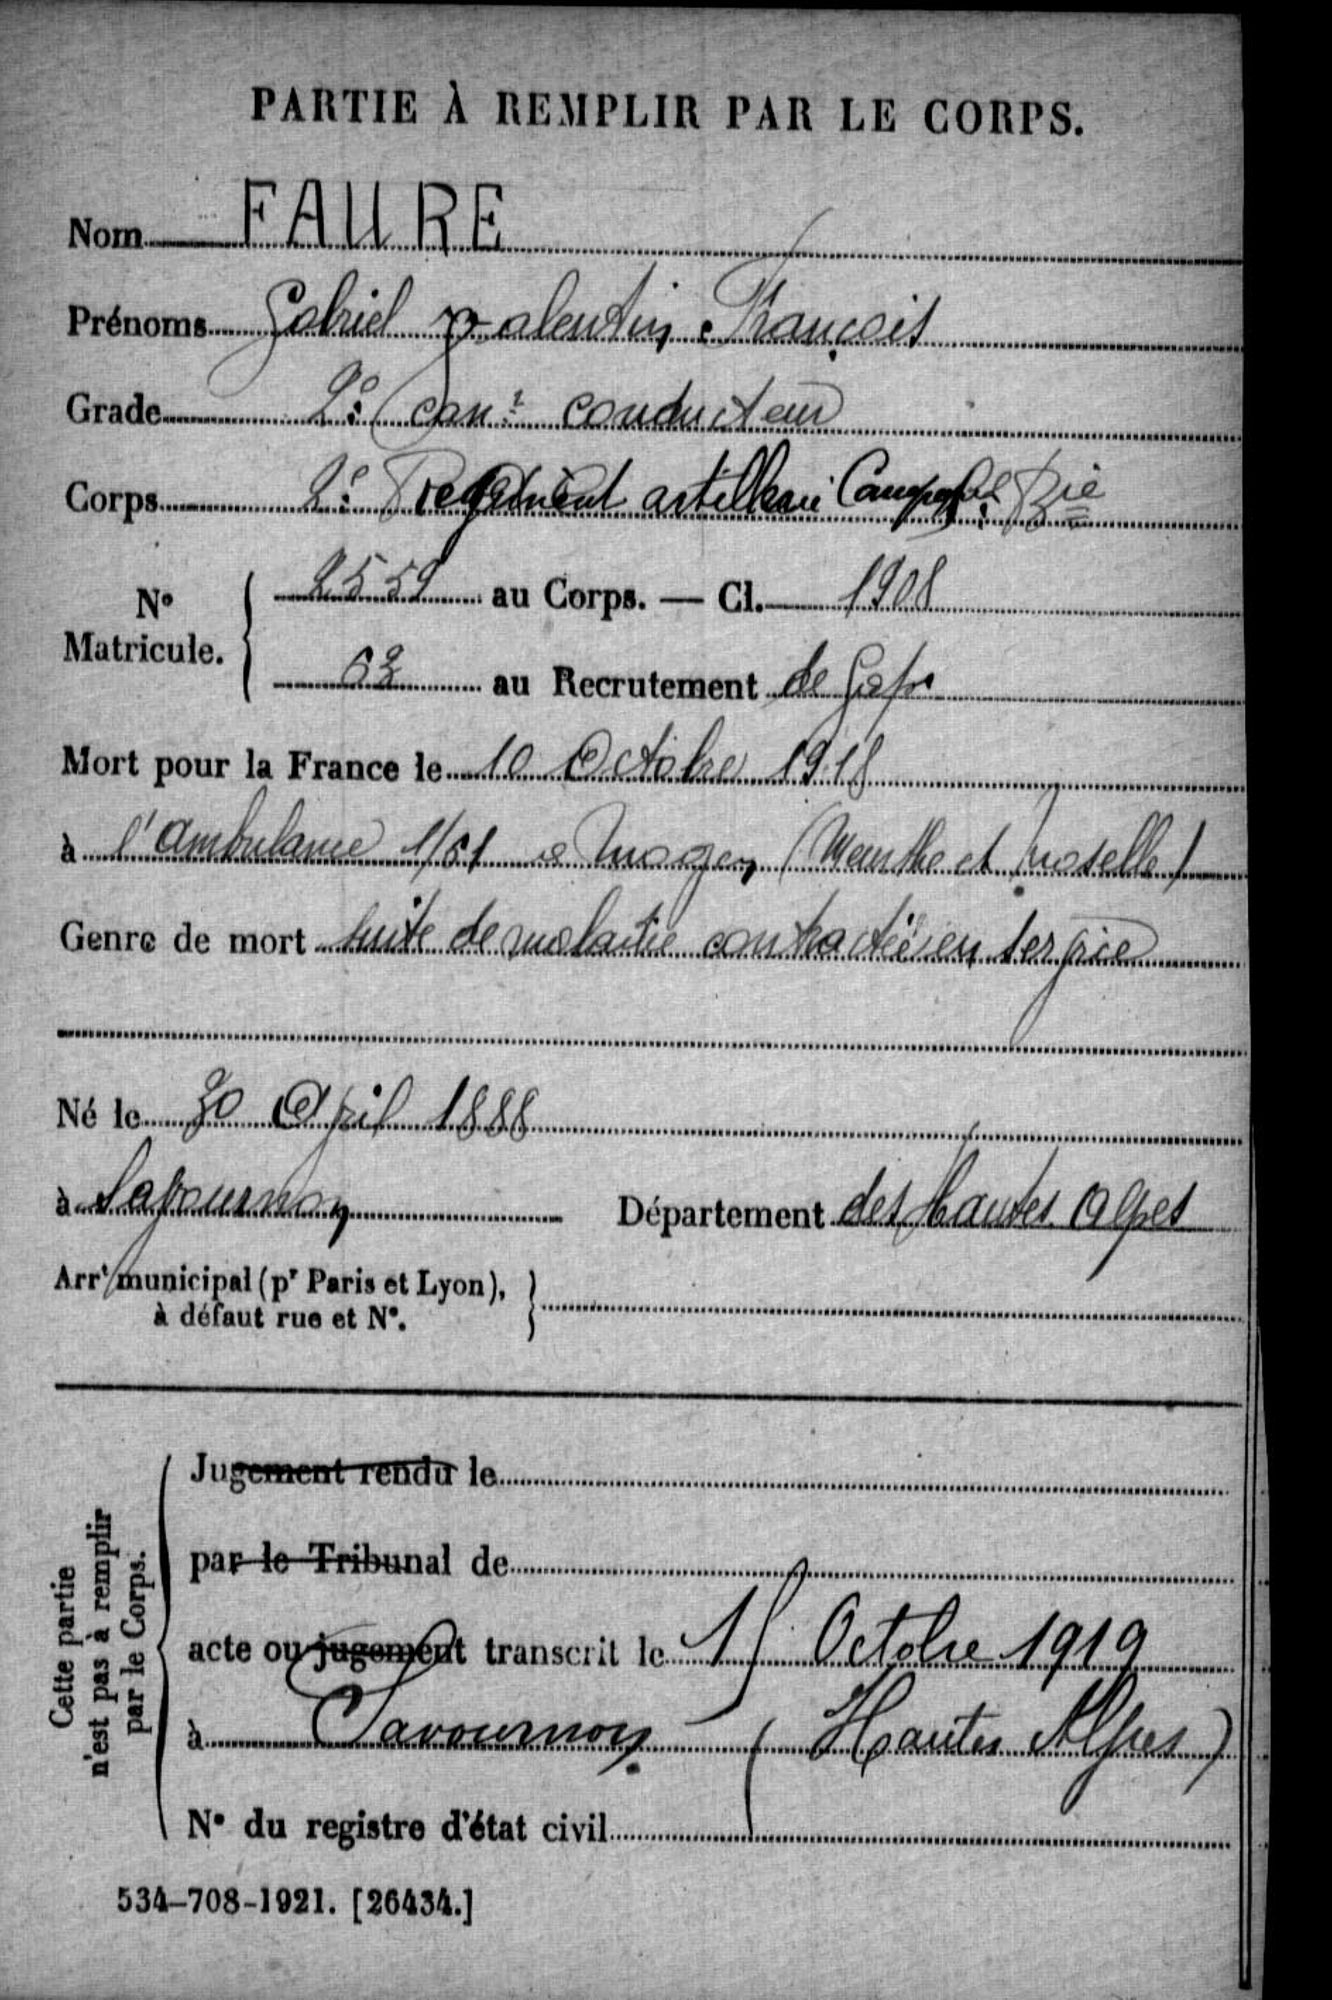 PARTIE À REMPLIR PAR LE CORPS.
Nom FAURE
Prénoms Gabriel Valentin François
Grade 2e Can. conducteur
Corps 2e Regiment artillerie Campagne
N° Matricule. 2559 au Corps. — Cl. 1908
63 au Recrutement de Gap
Mort pour la France le 10 Octobre 1918
à l'ambulance 1/61 a (Meurthe et Moselle)
Genre de mort suite de maladie contractée en service
Né le 30 Avril 1888
à Savournon Département des Hautes Alpes
Arrt municipal (pr Paris et Lyon),
à défaut rue et N°.
Cette partie
n'est pas à remplir
par le Corps.
Jugement rendu le
par le Tribunal de
acte ou jugement transcrit le 15 Octobre 1919
à Savournon (Hautes Alpes)
N° du registre d'état civil
534-708-1921. [26434.]